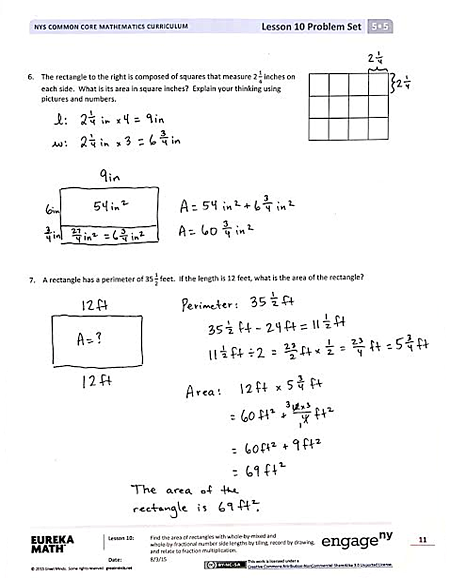 NYS COMMON CORE MATHEMATICS CURRICULUM
Lesson 10 Problem Set 5•5
2 1/4
6. The rectangle to the right is composed of squares that measure 2 1/4 inches on
each side. What is its area in square inches? Explain your thinking using
pictures and numbers.
2 1/4
l: 2 1/4 in x 4 = 9in
w: 2 1/4 in x 3 = 6 3/4 in
9in
6in
54in²
3/4 in
27/4 in² = 6 3/4 in²
A = 54 in² + 6 3/4 in²
A = 60 3/4 in²
7. A rectangle has a perimeter of 35 1/2 feet. If the length is 12 feet, what is the area of the rectangle?
12ft
A=?
12ft
Perimeter: 35 1/2 ft
35 1/2 ft - 24ft = 11 1/2 ft
11 1/2 ft ÷ 2 = 23/2 ft x 1/2 = 23/4 ft = 5 3/4 ft
Area: 12ft x 5 3/4 ft
= 60ft² + 12x3/4 ft²
= 60ft² + 9ft²
= 69ft²
The area of the
rectangle is 69ft².
EUREKA
MATH
Lesson 10:
Find the area of rectangles with whole-by-mixed and
whole-by-fractional number side lengths by tiling, record by drawing,
and relate to fraction multiplication.
Date:
8/3/15
engage ny
11
© 2015 Great Minds. Some rights reserved. greatminds.net
CC BY-NC-SA
This work is licensed under a
Creative Commons Attribution-NonCommercial-ShareAlike 3.0 Unported License.